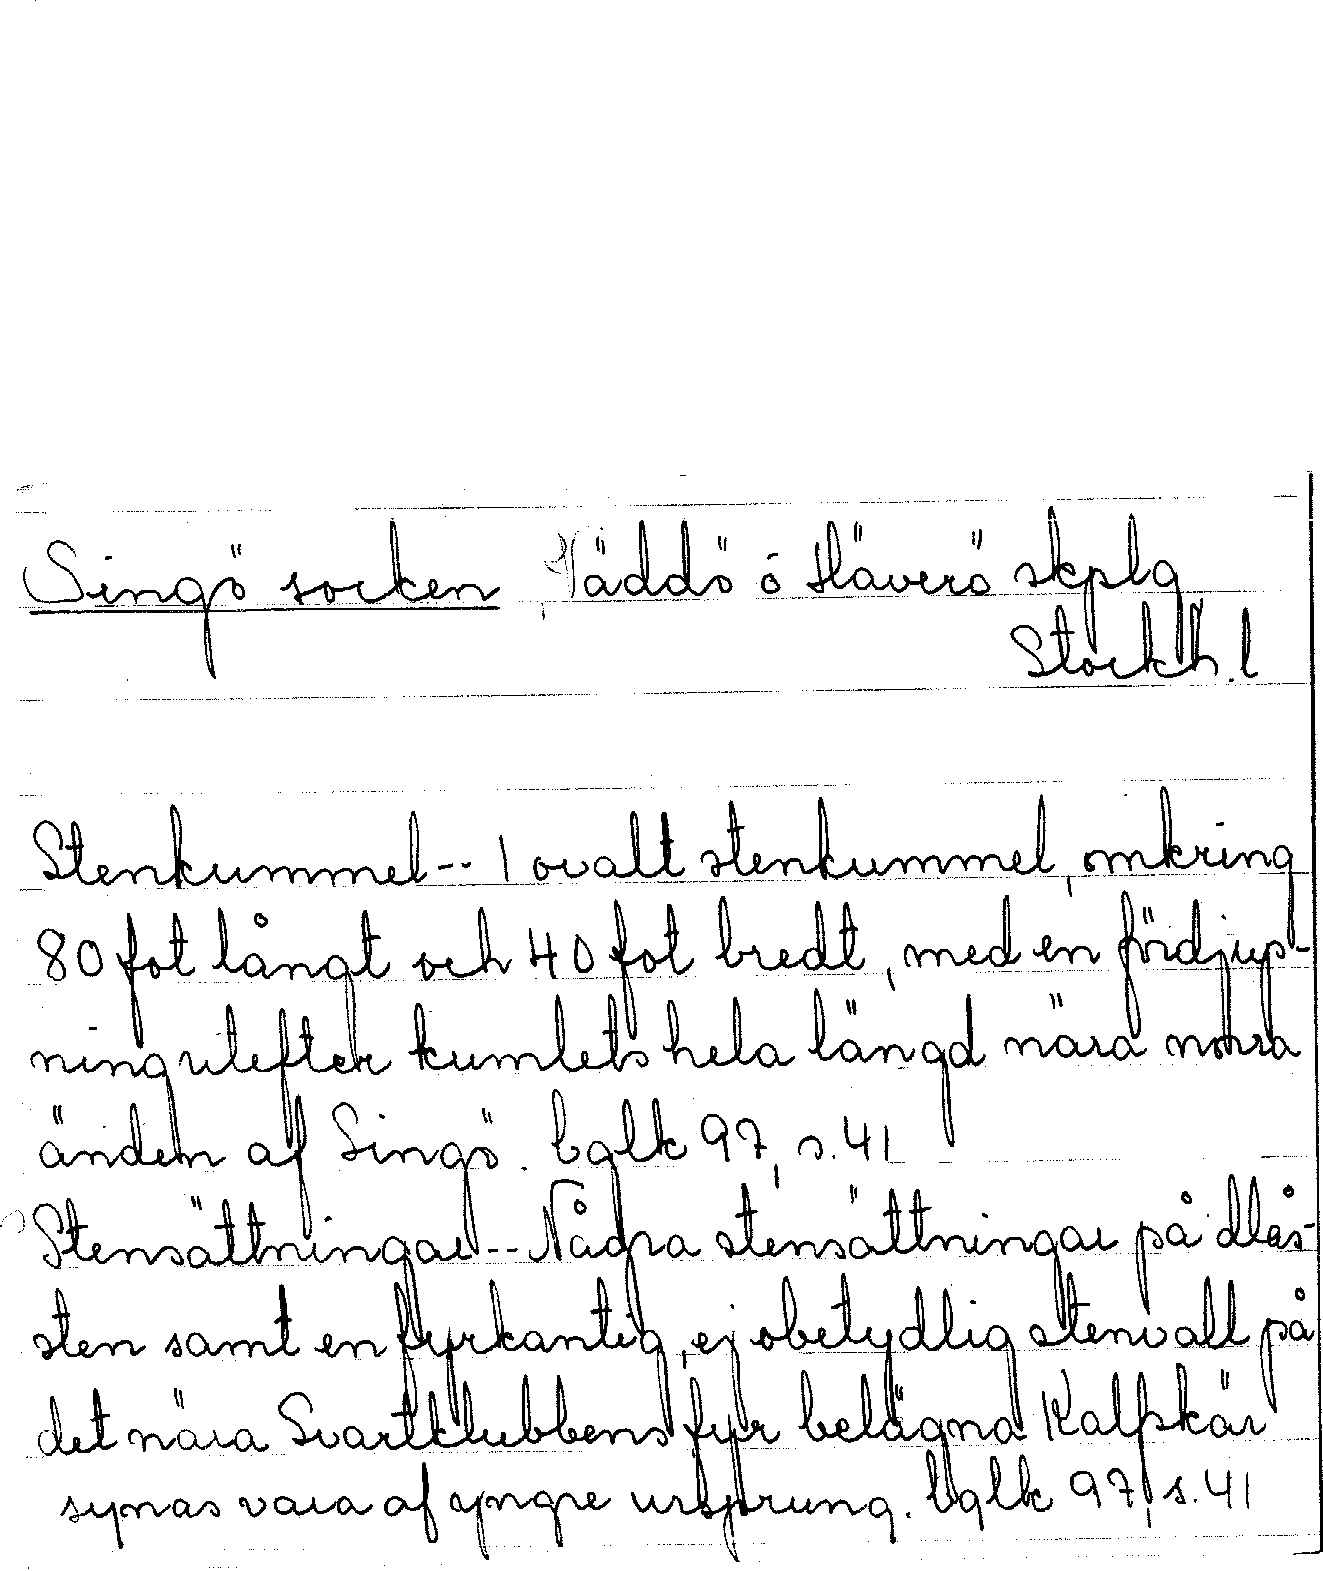 Singö socken Väddö o Häverö skplg
Stockh. l
Stenkummel -- 1 ovalt stenkummel, omkring
80 fot långt och 40 fot bredt, med en fördjup-
ning utefter kumlets hela längd nära norra
änden af Singö. bglk 97, s. 41
Stensättningar -- Några stensättningar på dlås-
sten samt en fyrkantig, ej obetydlig stenvall på
det nära Svartklubbens fyr belägna Kalfskär
synas vara af yngre ursprung. bglk 97, s. 41